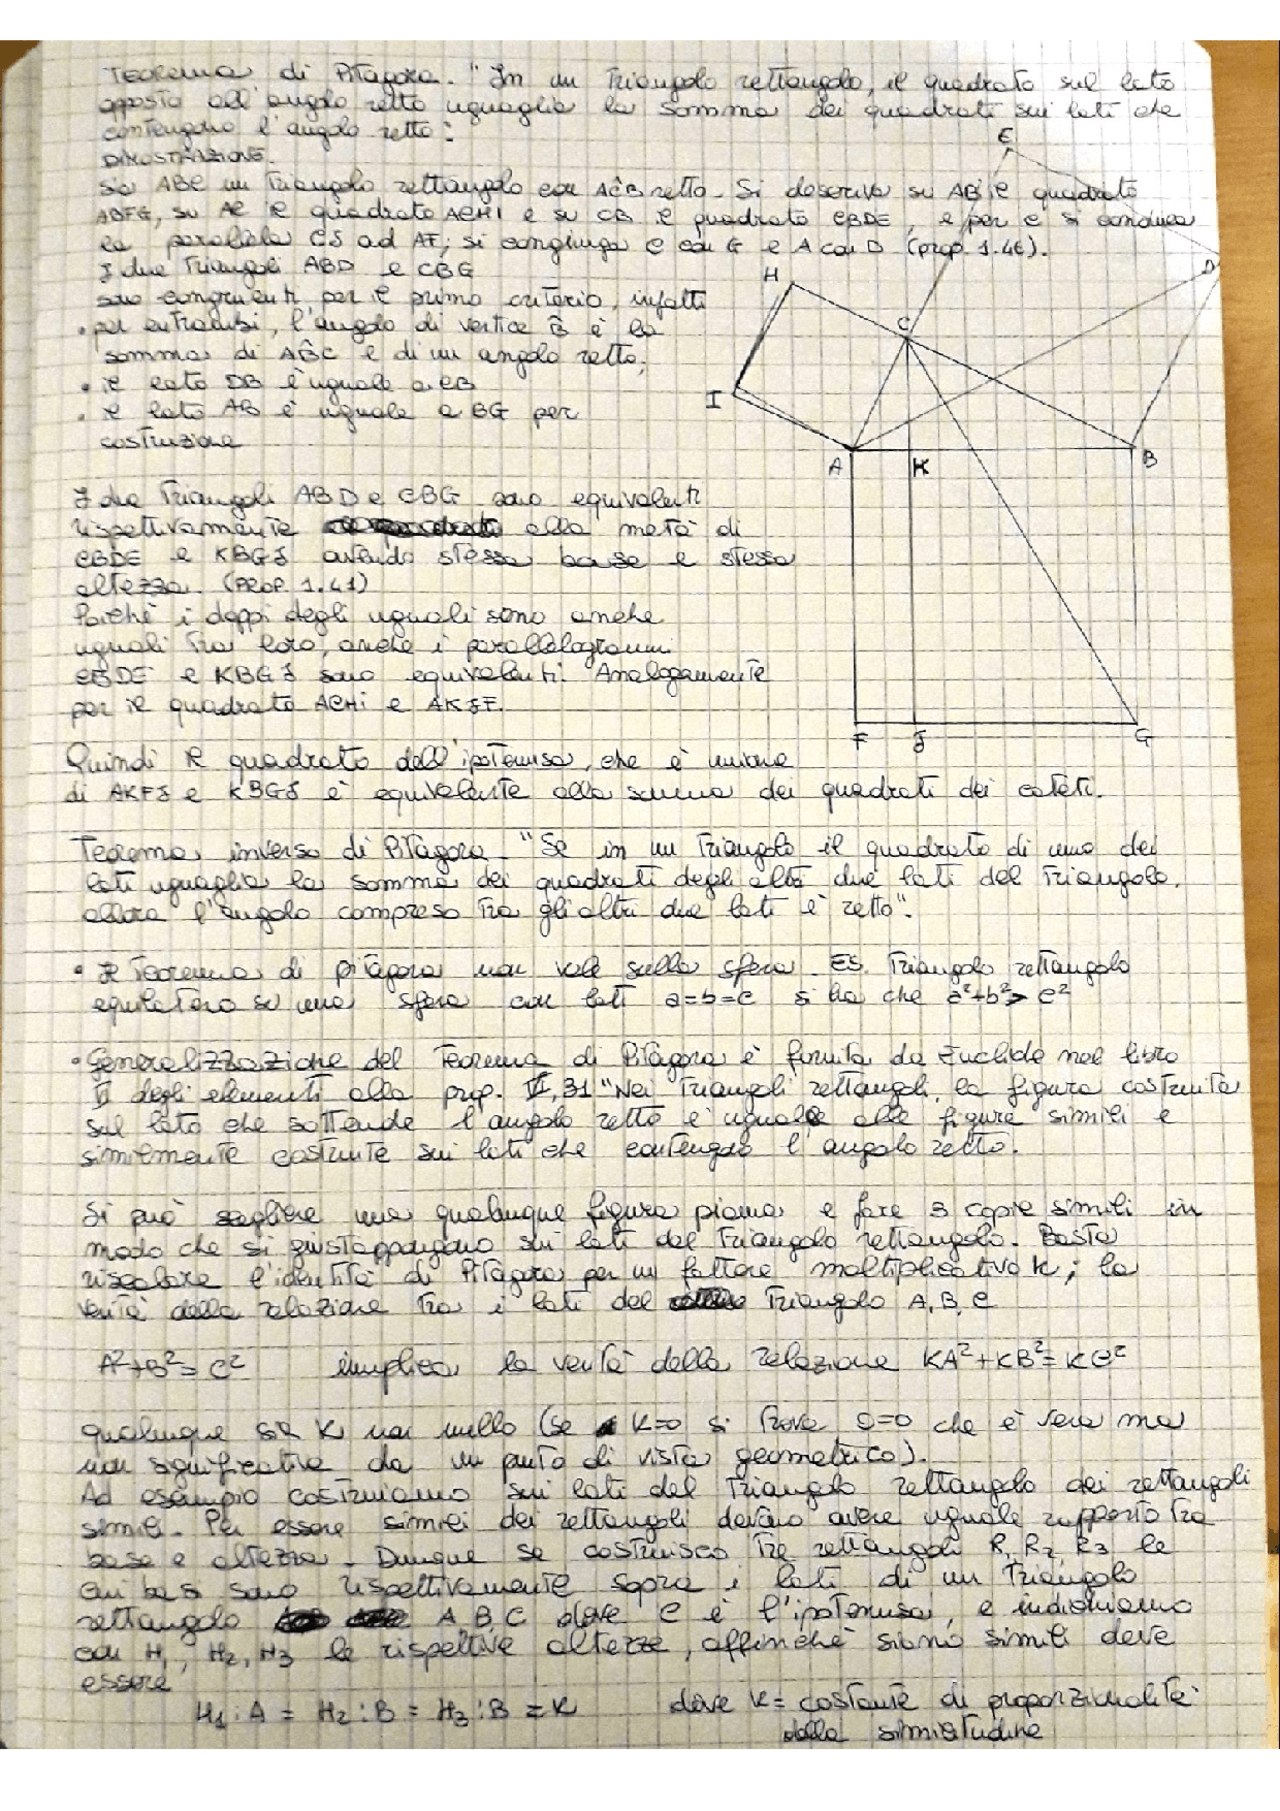 Teorema di Pitagora. "In un triangolo rettangolo, il quadrato sul lato
opposto all'angolo retto uguaglia la somma dei quadrati sui lati che
contengono l'angolo retto."
DIMOSTRAZIONE.
Sia ABC un triangolo rettangolo con AĈB retto. Si descriva su AB il quadrato
ABFG, su AC il quadrato ACHI e su CB il quadrato CBDE, e per C si conduca
la parallela CJ ad AF; si congiunga C con G e A con D (prop. 1.46).
I due triangoli ABD e CBG
sono congruenti per il primo criterio, infatti
• per entrambi, l'angolo di vertice B̂ è la
somma di AB̂C e di un angolo retto;
• il lato DB è uguale a CB
• il lato AB è uguale a BG per
costruzione
E
D
H
C
I
A
K
B
F
J
G
I due triangoli ABD e CBG sono equivalenti
rispettivamente alla metà di
CBDE e KBGJ avendo stessa base e stessa
altezza. (PROP. 1.41)
Poiché i doppi degli uguali sono anche
uguali tra loro, anche i parallelogrammi
CBDE e KBGJ sono equivalenti. Analogamente
per il quadrato ACHI e AKJF.
Quindi il quadrato dell'ipotenusa, che è unione
di AKFJ e KBGJ è equivalente alla somma dei quadrati dei cateti.
Teorema inverso di Pitagora - "Se in un triangolo il quadrato di uno dei
lati uguaglia la somma dei quadrati degli altri due lati del triangolo,
allora l'angolo compreso tra gli altri due lati è retto".
• Il Teorema di pitagora non vale sulla sfera. ES. Triangolo rettangolo
equilatero su una sfera con lati a=b=c si ha che a²+b²> c²
• Generalizzazione del Teorema di Pitagora è fornita da Euclide nel libro
VI degli elementi alla prop. VI,31 "Nei triangoli rettangoli, la figura costruita
sul lato che sottende l'angolo retto è uguale alle figure simili e
similmente costruite sui lati che contengono l'angolo retto.
Si può scegliere una qualunque figura piana e fare 3 copie simili in
modo che si giustappongano sui lati del triangolo rettangolo. Basta
riscalare l'identità di Pitagora per un fattore moltiplicativo k; la
verità della relazione tra i lati del triangolo A, B, C
A²+B²=C² implica la verità della relazione KA²+KB²=KC²
qualunque sia K non nullo (se K=0 si trova 0=0 che è vera ma
non significativa da un punto di vista geometrico).
Ad esempio costruiamo sui lati del triangolo rettangolo dei rettangoli
simili. Per essere simili dei rettangoli devono avere uguale rapporto tra
base e altezza. Dunque se costruisco tre rettangoli R₁ R₂, R₃ le
cui basi sono rispettivamente sopra i lati di un triangolo
rettangolo A B C dove C è l'ipotenusa, e indichiamo
con H₁, H₂, H₃ le rispettive altezze, affinché siano simili deve
essere
H₁:A = H₂:B = H₃:B = K dove K= costante di proporzionalità
della similitudine